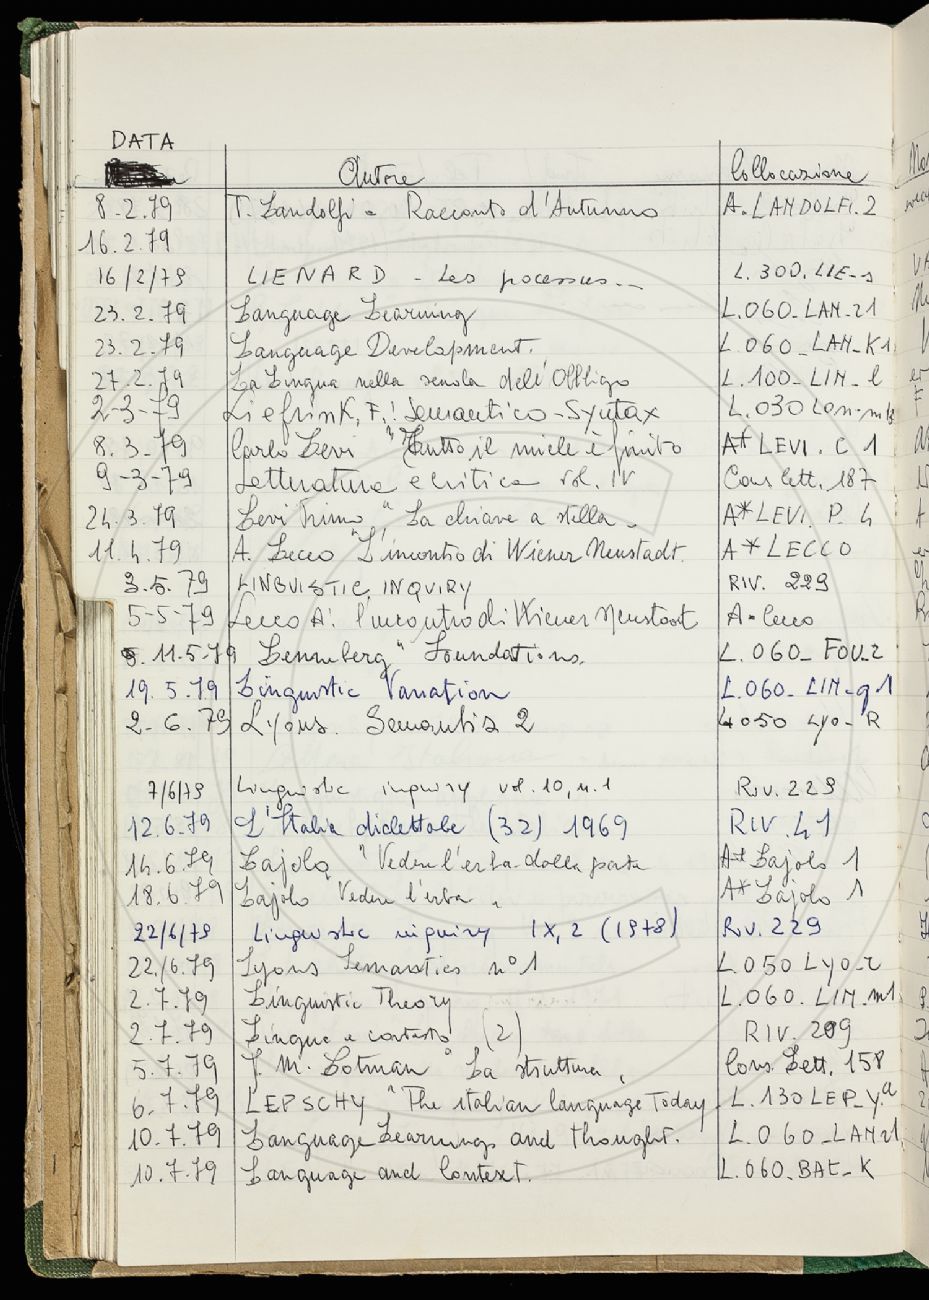 DATA
Autore Collocazione
8.2.79 T. Landolfi - Racconto d'Autunno A. LANDOLFI. 2
16.2.79
16/2/79 LIENARD - Les pocessus... L. 300. LIE-s
23.2.79 Language Learning L.060-LAN-l1
23.2.79 Language Development. L.060-LAN-K1
27.2.79 La Lingua nella scuola dell'Obbligo L.100-LIN-l
2-3-79 Liefrink, F.: Semantico-Syntax L.030
8.3.79 Carlo Levi "Tutto il miele è finito A* LEVI. C 1
9-3-79 Letteratura e critica vol. IV Cons lett. 187
24.3.79 Levi Primo "La chiave a stella. A* LEVI. P. 4
11.4.79 A. Lecco "L'incontro di Wiener Neustadt. A* LECCO
3.5.79 LINGUISTIC INQUIRY RIV. 229
5-5-79 Lecco A: l'incontro di Wiener Neustadt A-Lecco
11.5.79 Lenneberg "Foundations. L.060-FOU-2
19.5.79 Linguistic Variation L.060-LIN-g1
2-6.79 Lyons. Semantis 2 L050 Lyo-R
7/6/79 Linguistic inquiry vol.10, n.1 Riv. 229
12.6.79 L'Italia dialettale (32) 1969 RIV. 41
14.6.79 Lajolo "Vedere l'erba dalla parte A* Lajolo 1
18.6.79 Lajolo "Vedere l'erba " A* Lajolo 1
22/6/79 Linguistic inquiry IX, 2 (1978) Riv. 229
22/6.79 Lyons Semantics n°1 L.050 Lyo-r
2.7.79 Linguistic Theory L.060. LIN.m1
2.7.79 Lingue e contesto (2) RIV. 209
5.7.79 J. M. Lotman "La struttura " Cons. Lett. 158
6.7.79 LEPSCHY "The italian language Today L.130LEP-y.a
10.7.79 Language Learnings and thought. L.060-LAN
10.7.79 Language and Context. L.060-BAT-K